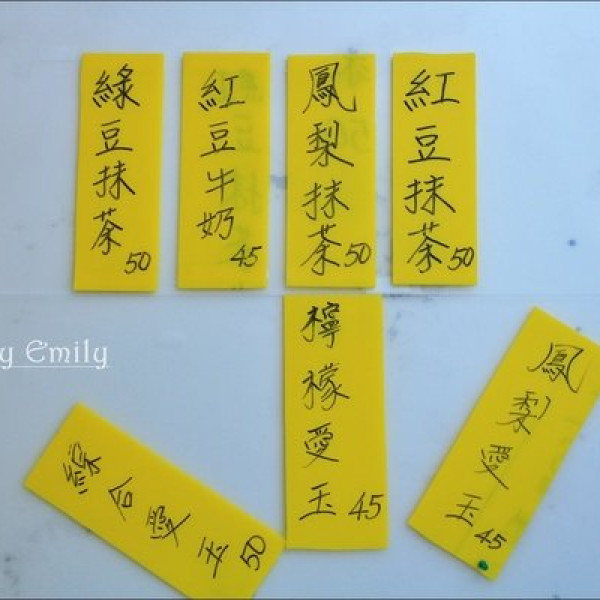 綠豆抹茶 50
紅豆牛奶 45
鳳梨抹茶 50
紅豆抹茶 50
y Emily
綜合愛玉 50
檸檬愛玉 45
鳳梨愛玉 45